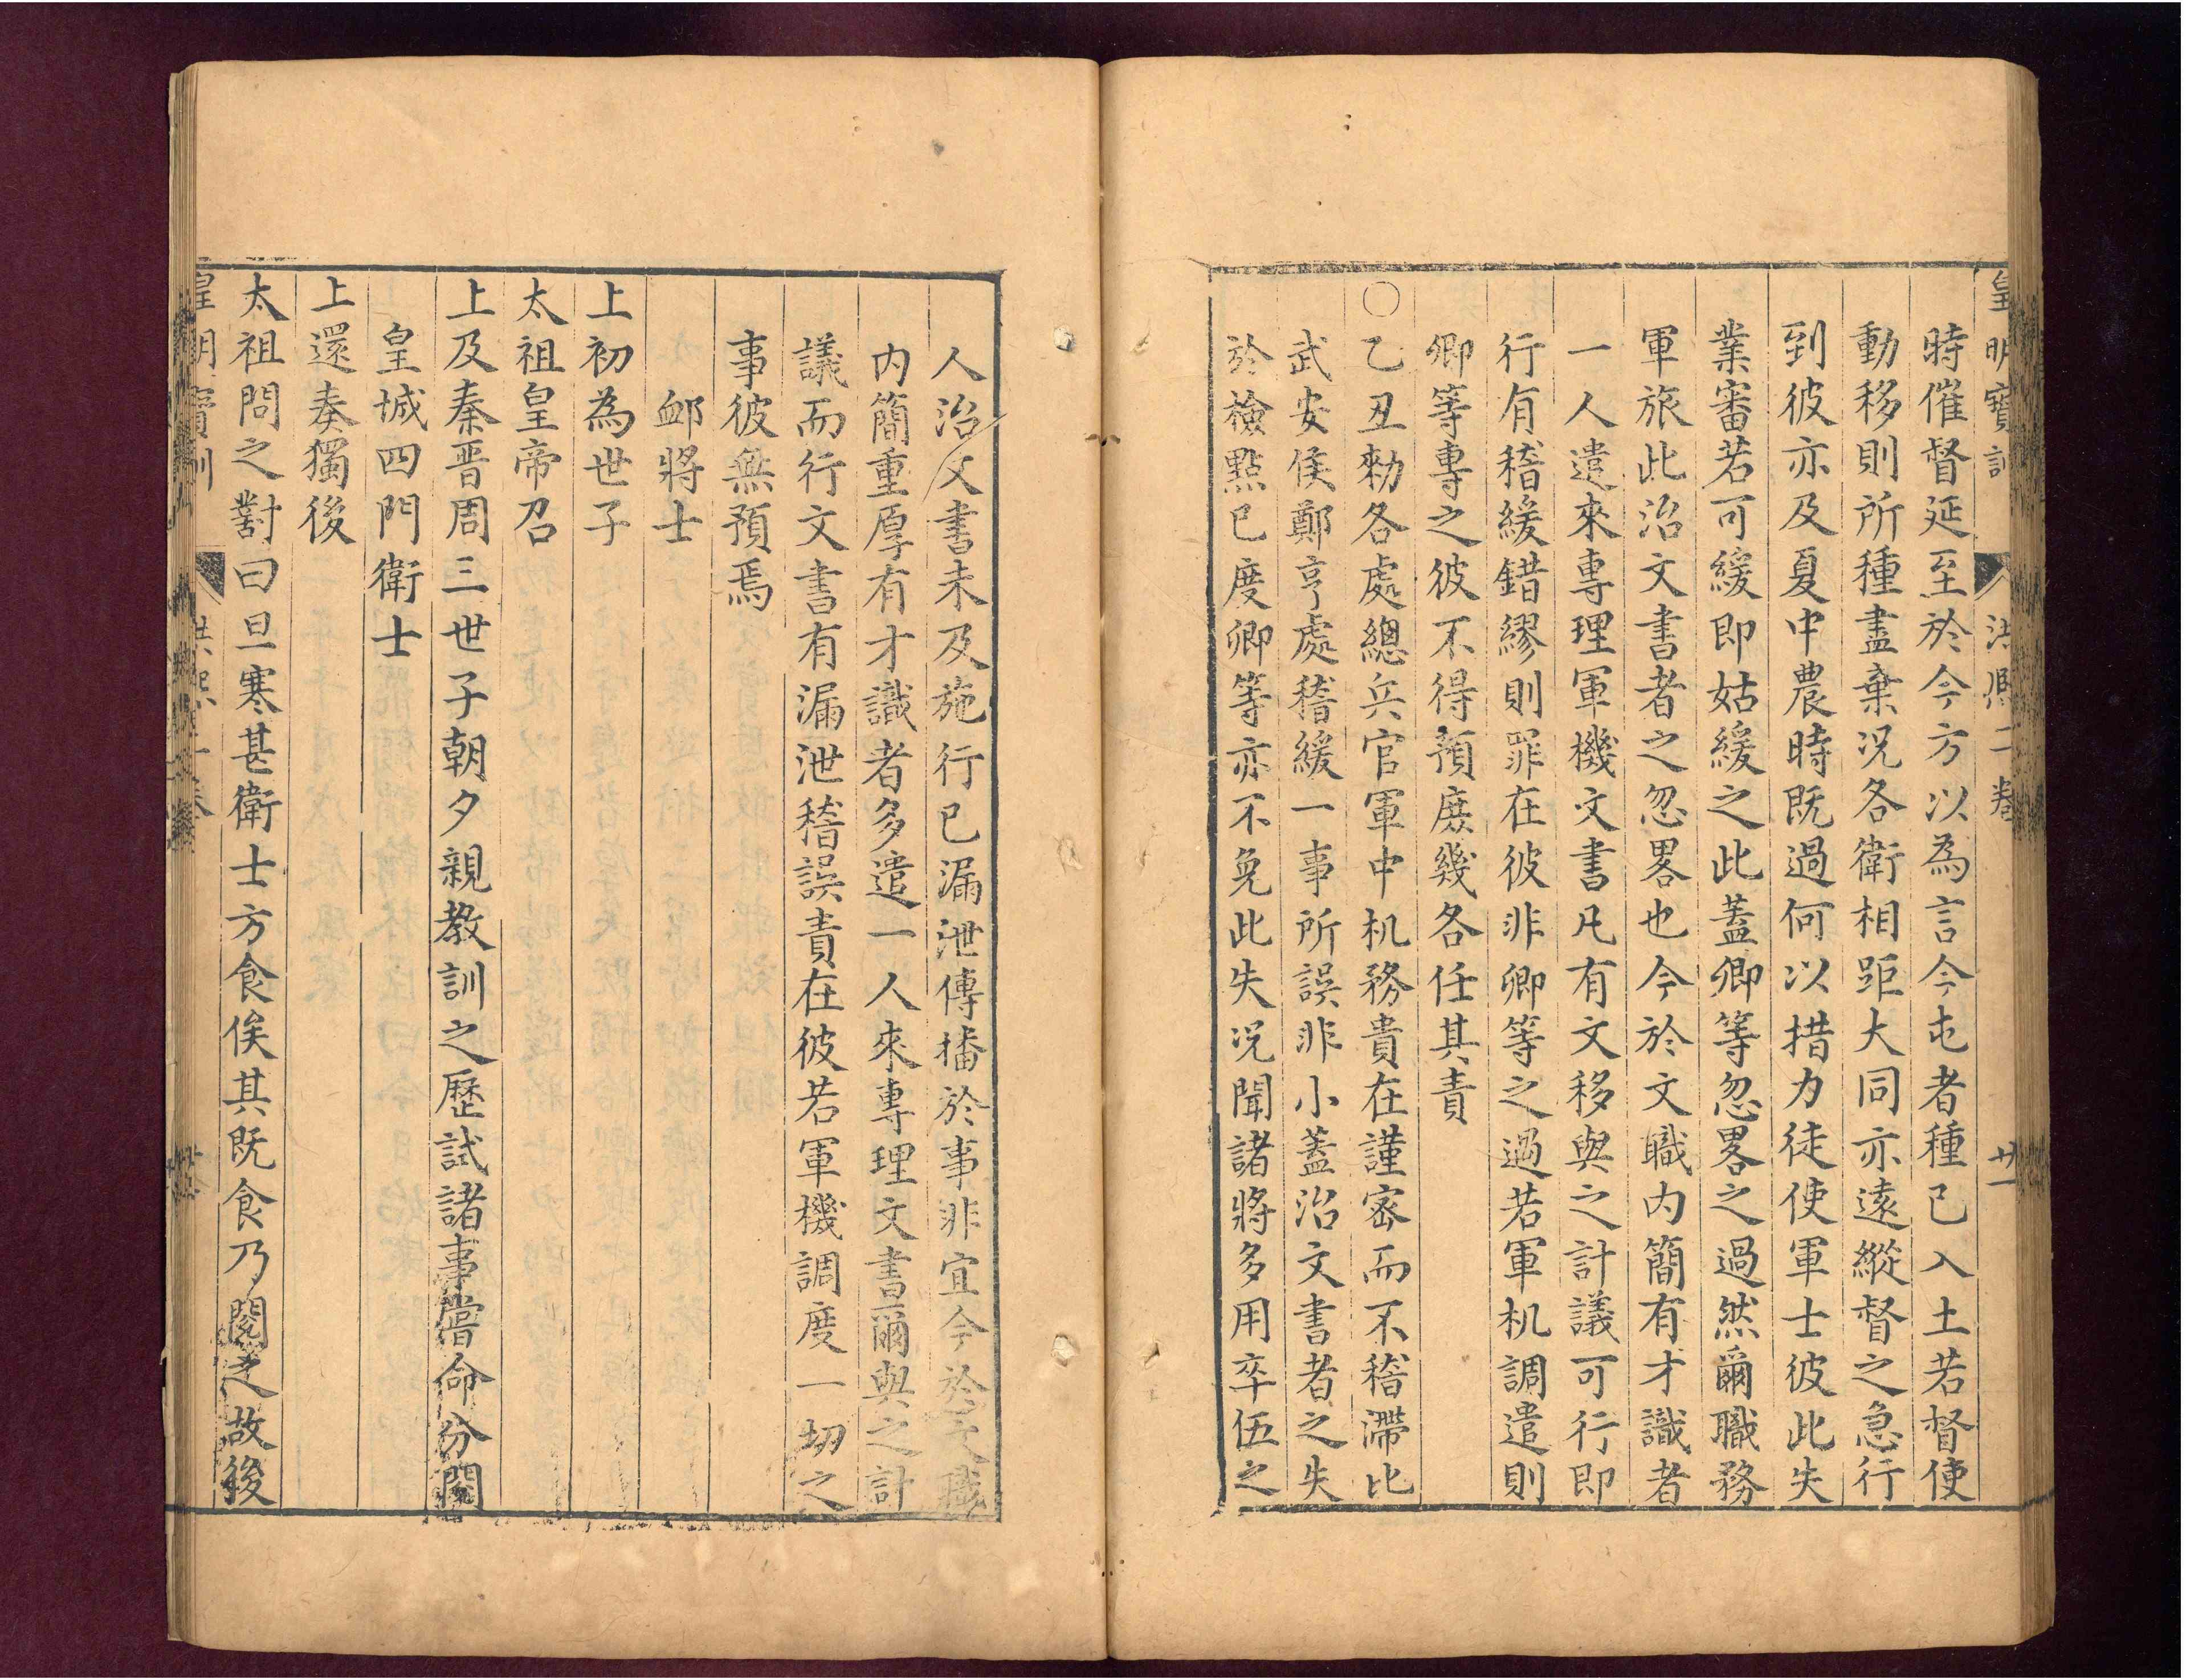 皇明寶訓 洪熙二卷 廿一
時催督延至於今方以為言今屯者種已入土若督使
動移則所種盡棄况各衛相距大同亦遠縱督之急行
到彼亦及夏中農時既過何以措力徒使軍士彼此失
業審若可緩即姑緩之此蓋卿等忽畧之過然爾職務
軍旅此治文書者之忽畧也今於文職内簡有才識者
一人遣來專理軍機文書凡有文移與之計議可行即
行有稽緩錯繆則罪在彼非卿等之過若軍机調遣則
卿等專之彼不得預庶幾各任其責
○乙丑勑各處總兵官軍中机務貴在謹宻而不稽滯比
武安侯鄭亨處稽緩一事所誤非小蓋治文書者之失
於檢點已度卿等亦不免此失况聞諸將多用卒伍之
人治文書未及施行已漏泄傳播於事非宜今於文職
内簡重厚有才識者多遣一人來專理文書爾與之計
議而行文書有漏泄稽誤責在彼若軍機調度一切之
事彼無預焉
䘏將士
上初為世子
太祖皇帝召
上及秦晋周三世子朝夕親教訓之歷試諸事嘗命分閱
皇城四門衛士
上還奏獨後
太祖問之對曰旦寒甚衛士方食俟其既食乃閱之故後
皇明寶訓 洪熙二卷